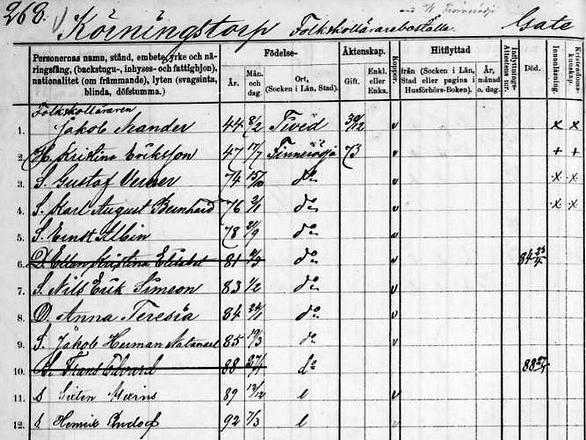 268. Körningstorp Folkskollärareboställe. Gate
Personernas namn, stånd, embete, yrke och näringsfång, (backstugu-, inhyses- och fattighjon), nationalitet (om främmande), lyten (svagsinta, blinda, döfstumma).
Födelse-
År. Mån. och dag. Ort, (Socken i Län, Stad).
Äktenskap.
Gift. Enkl. eller Enka.
Koppor.
Hitflyttad
från (Socken i Län, Stad eller pagina i Husförhörs-Boken). År, månad o. dag.
Död.
Innanläsning.
Kristendomskunskap.
Folkskolläraren
1. Jakob Nander 44 8/2 Tived 30/12 v x x
2. H. Kristina Eriksson 47 17/7 Finnerödja 73 v + +
3. S. Gustaf Verner 74 15/10 do v x x
4. S. Karl August Bernhard 76 2/1 do v x x
5. S. Ernst Albin 78 21/9 do v
6. D. Ellen Kristina Elisabet 81 do
7. S. Nils Erik Simeon 83 1/2 do v
8. D. Anna Teresia 84 24/1 do v
9. S. Jakob Herman Natanael 85 19/3 do v
10. S. Frans Edvard 88 27/1 do
11. S 89 13/12 v
12. S Henrik 92 7/3